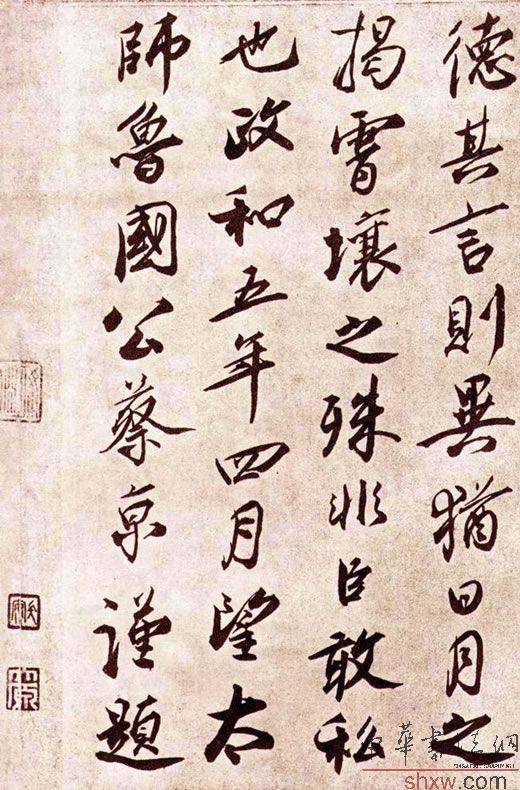 德其言則異猶日月之
揭霄壤之殊非臣敢私
也政和五年四月望太
師魯國公蔡京謹題
shxw.com